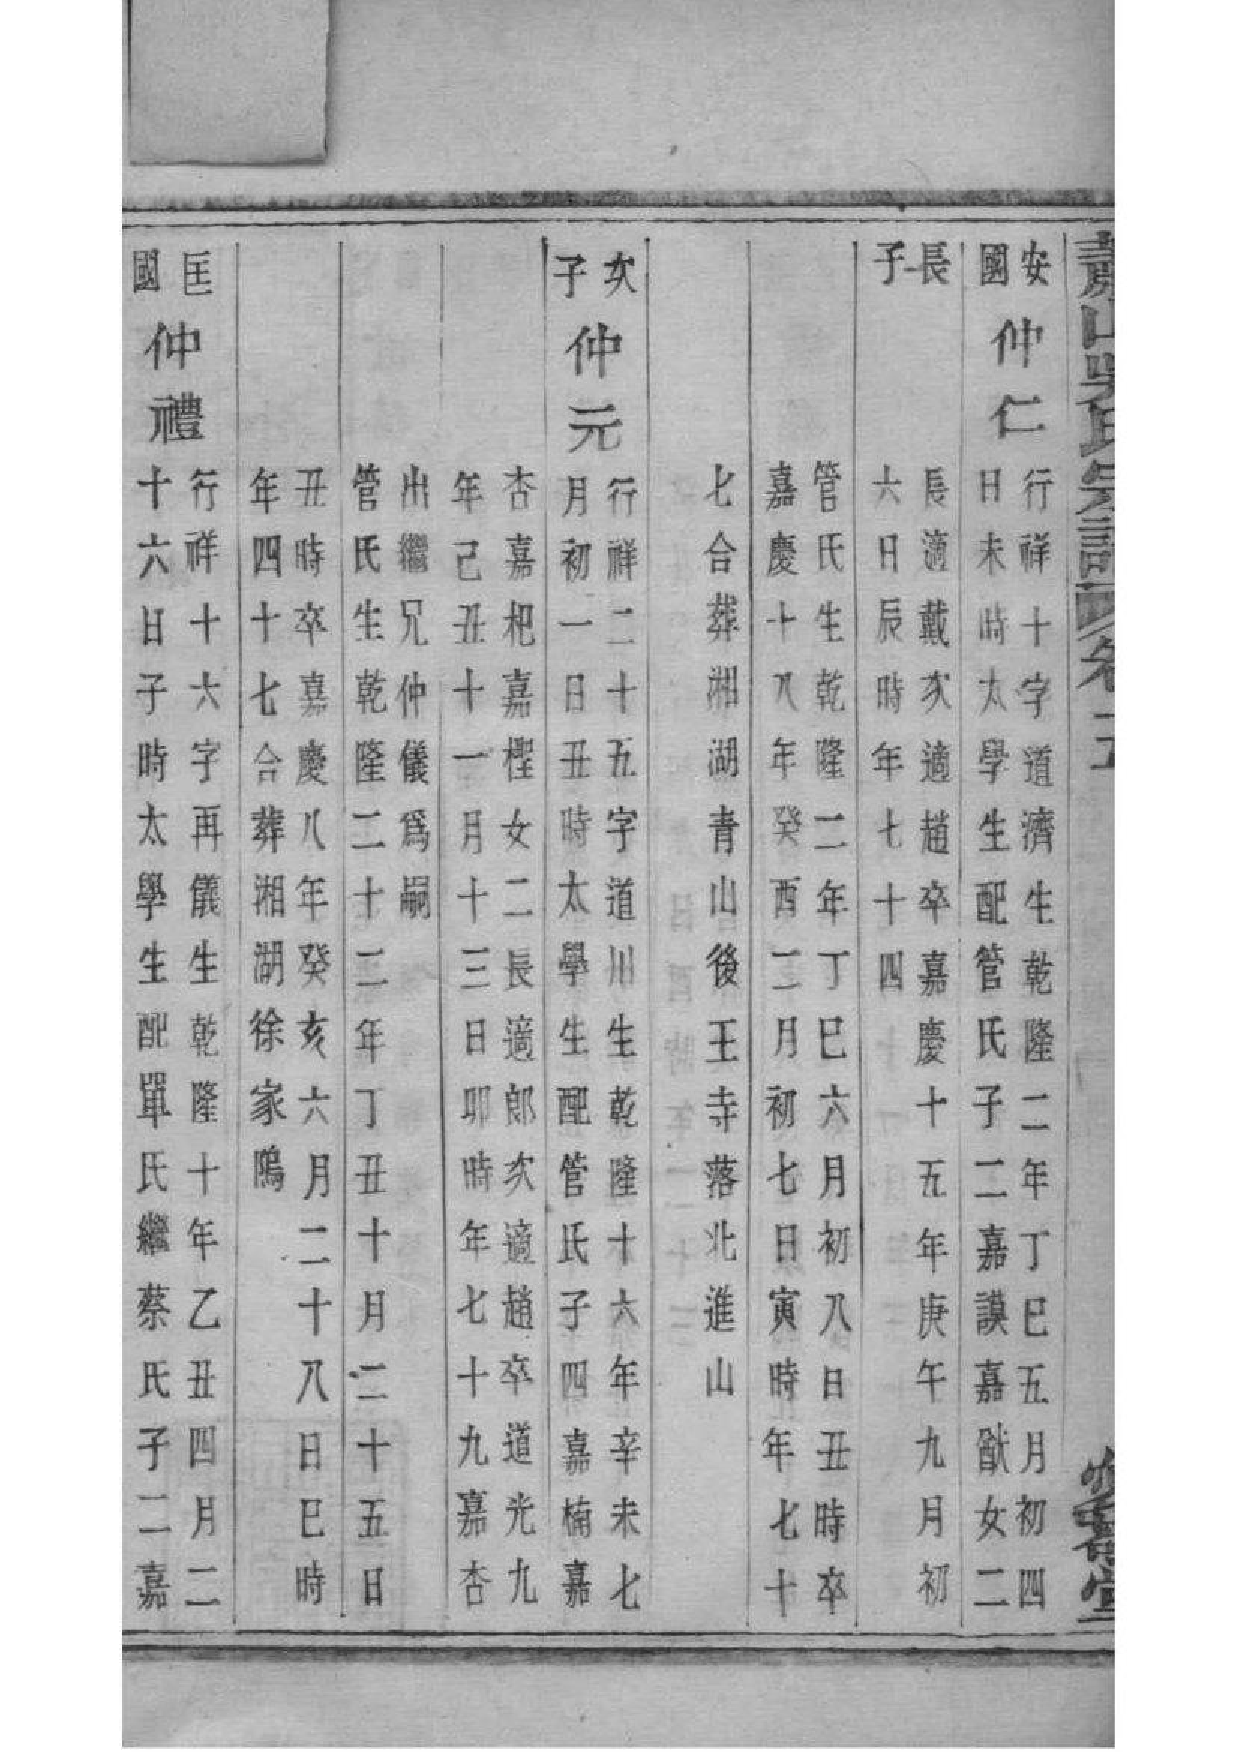 蕭山吳氏宗譜 卷十五
安國
仲仁
行祥十字道濟生乾隆二年丁巳五月初四
日未時太學生配管氏子二嘉謨嘉猷女二
長子
長適戴次適趙卒嘉慶十五年庚午九月初
六日辰時年七十四
管氏生乾隆二年丁巳六月初八日丑時卒
嘉慶十八年癸酉二月初七日寅時年七十
七合葬湘湖青山後王寺落北進山
次子
仲元
行祥二十五字道川生乾隆十六年辛未七
月初一日丑時太學生配管氏子四嘉楠嘉
杏嘉杷嘉檉女二長適郎次適趙卒道光九
年己丑十一月十三日卯時年七十九嘉杏
出繼兄仲儀爲嗣
管氏生乾隆二十二年丁丑十月二十五日
丑時卒嘉慶八年癸亥六月二十八日巳時
年四十七合葬湘湖徐家隖
匡國
仲禮
行祥十六字再儀生乾隆十年乙丑四月二
十六日子時太學生配單氏繼蔡氏子二嘉